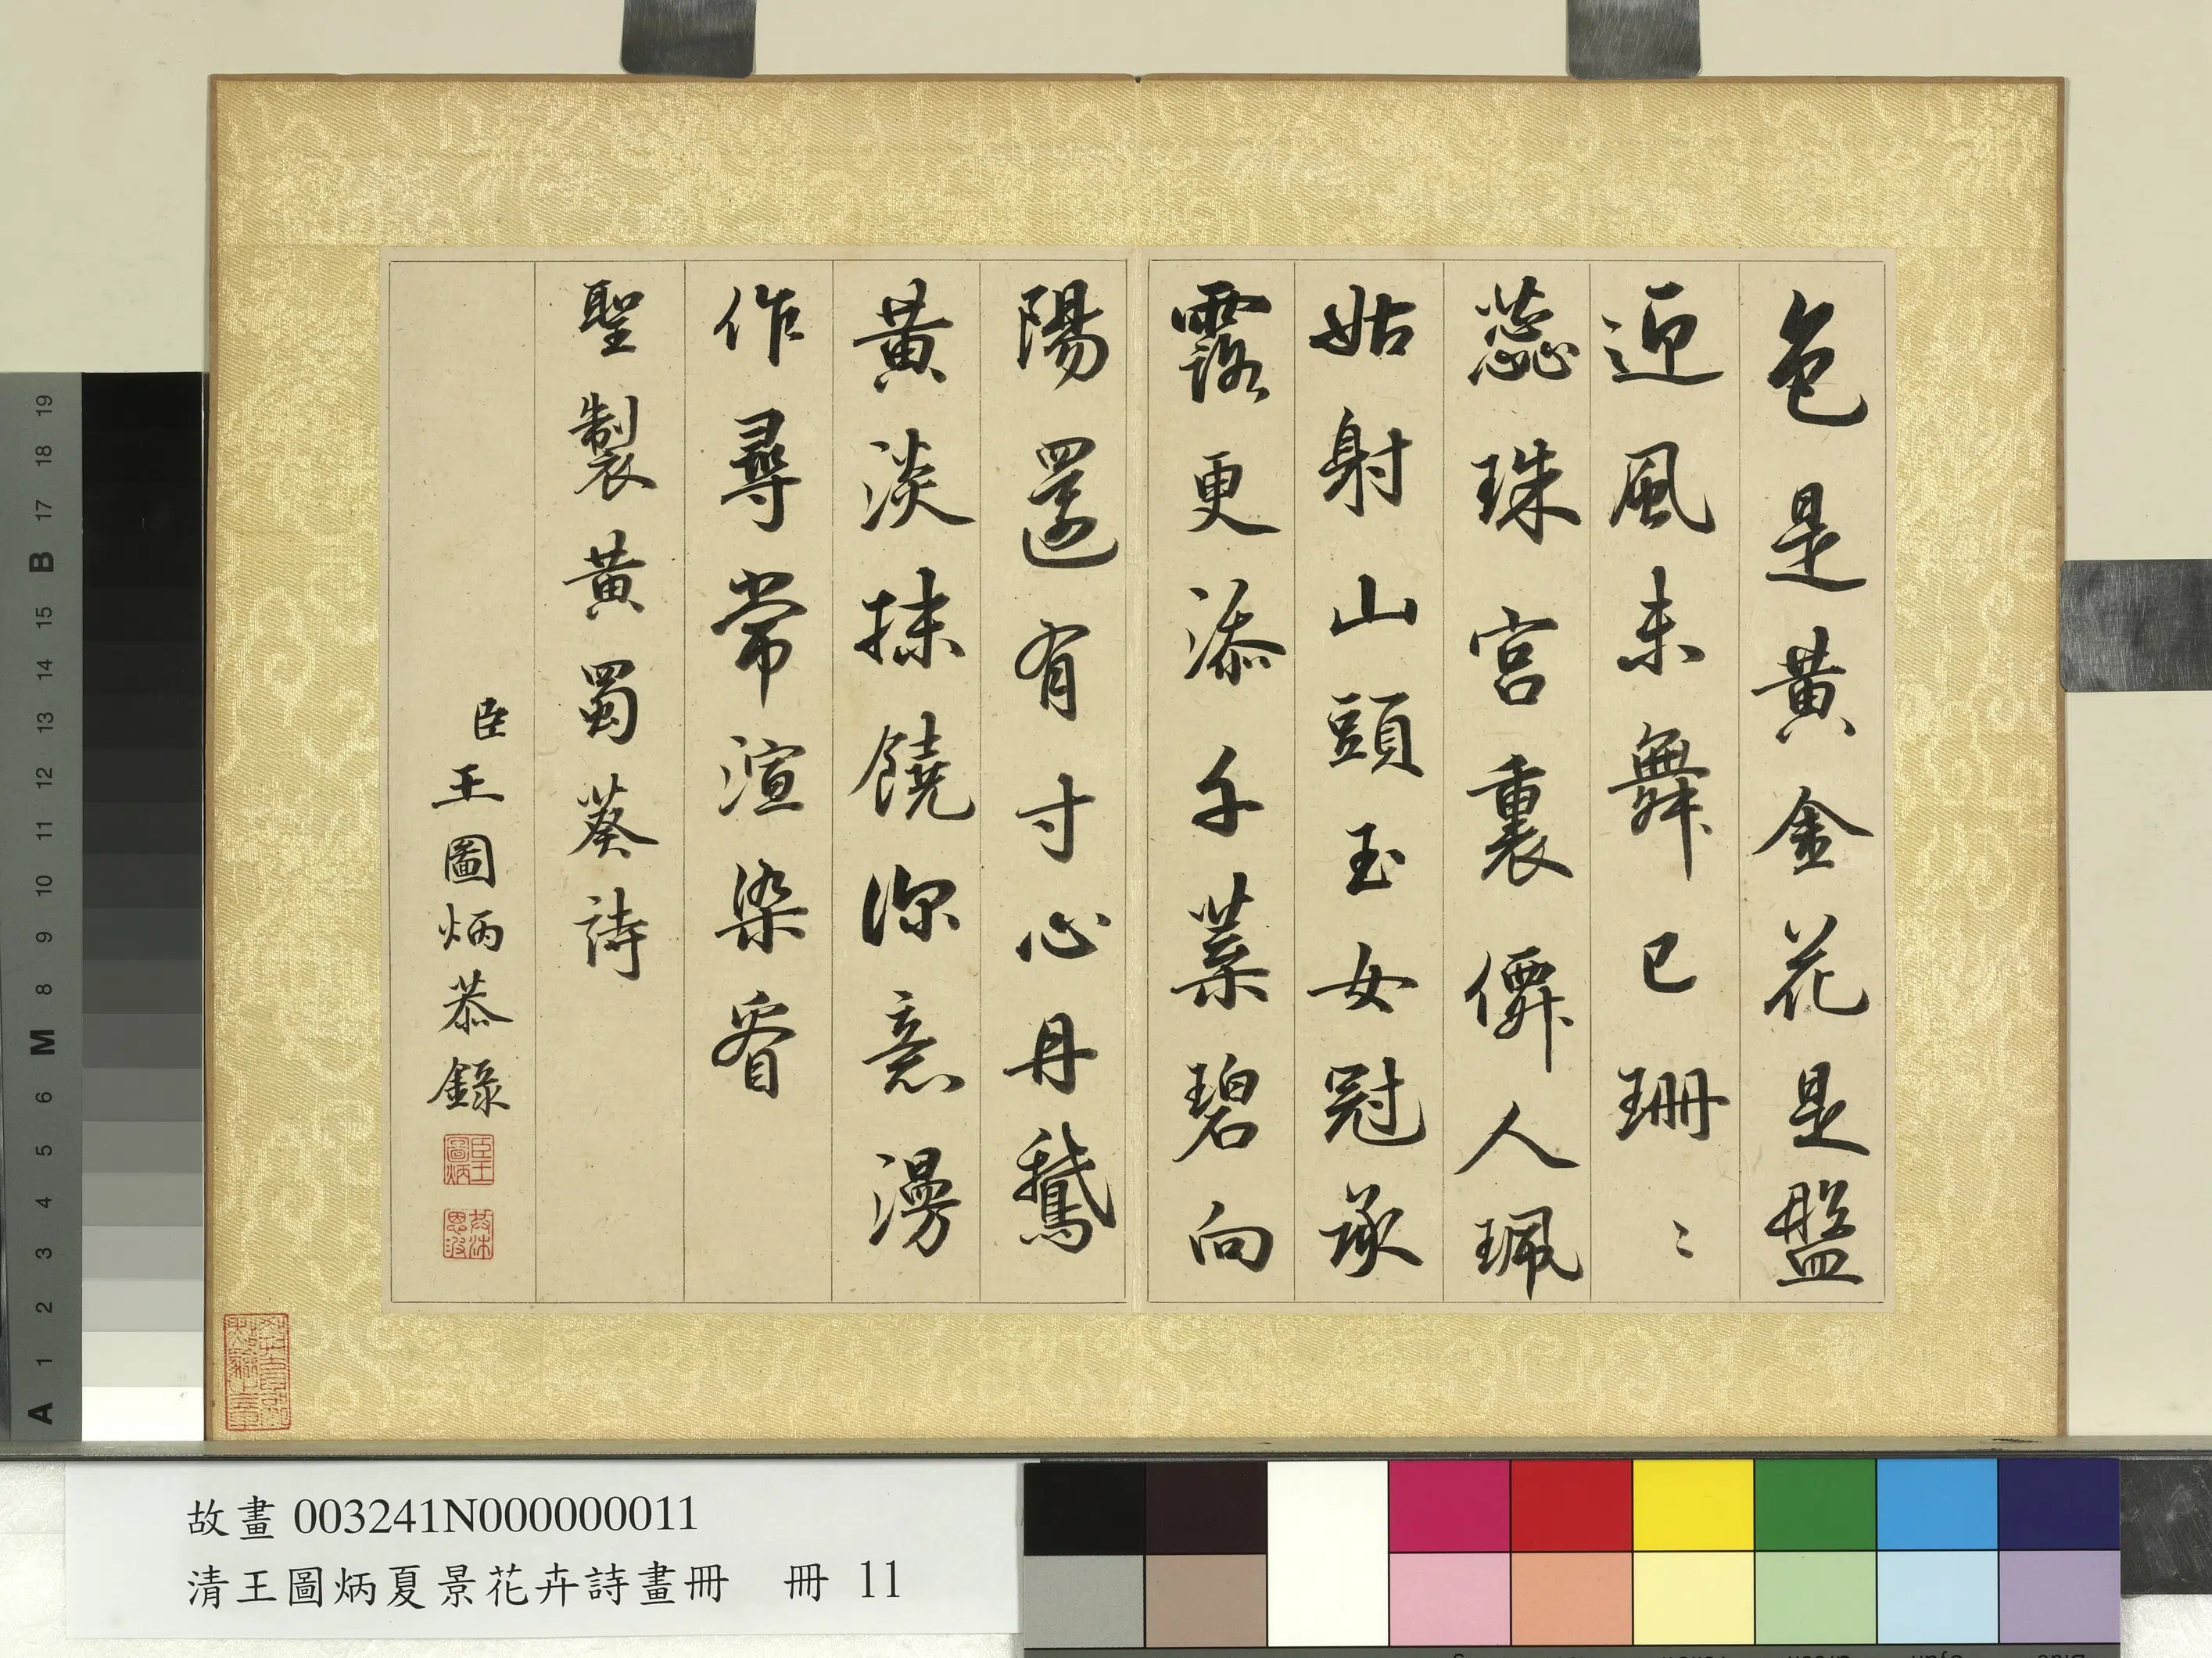 色是黃金花是盤
迎風未舞已珊〻
蕊珠宮裏僊人珮
姑射山頭玉女冠承
露更添千葉碧向
陽還有寸心丹鵝
黃淡抹饒深意漫
作尋常渲染看
聖製黃蜀葵詩
臣王圖炳恭錄
臣王圖炳
故畫 003241N000000011
清王圖炳夏景花卉詩畫冊 冊 11
A 1 2 3 4 5 6 M 8 9 10 11 12 13 14 15 B 17 18 19